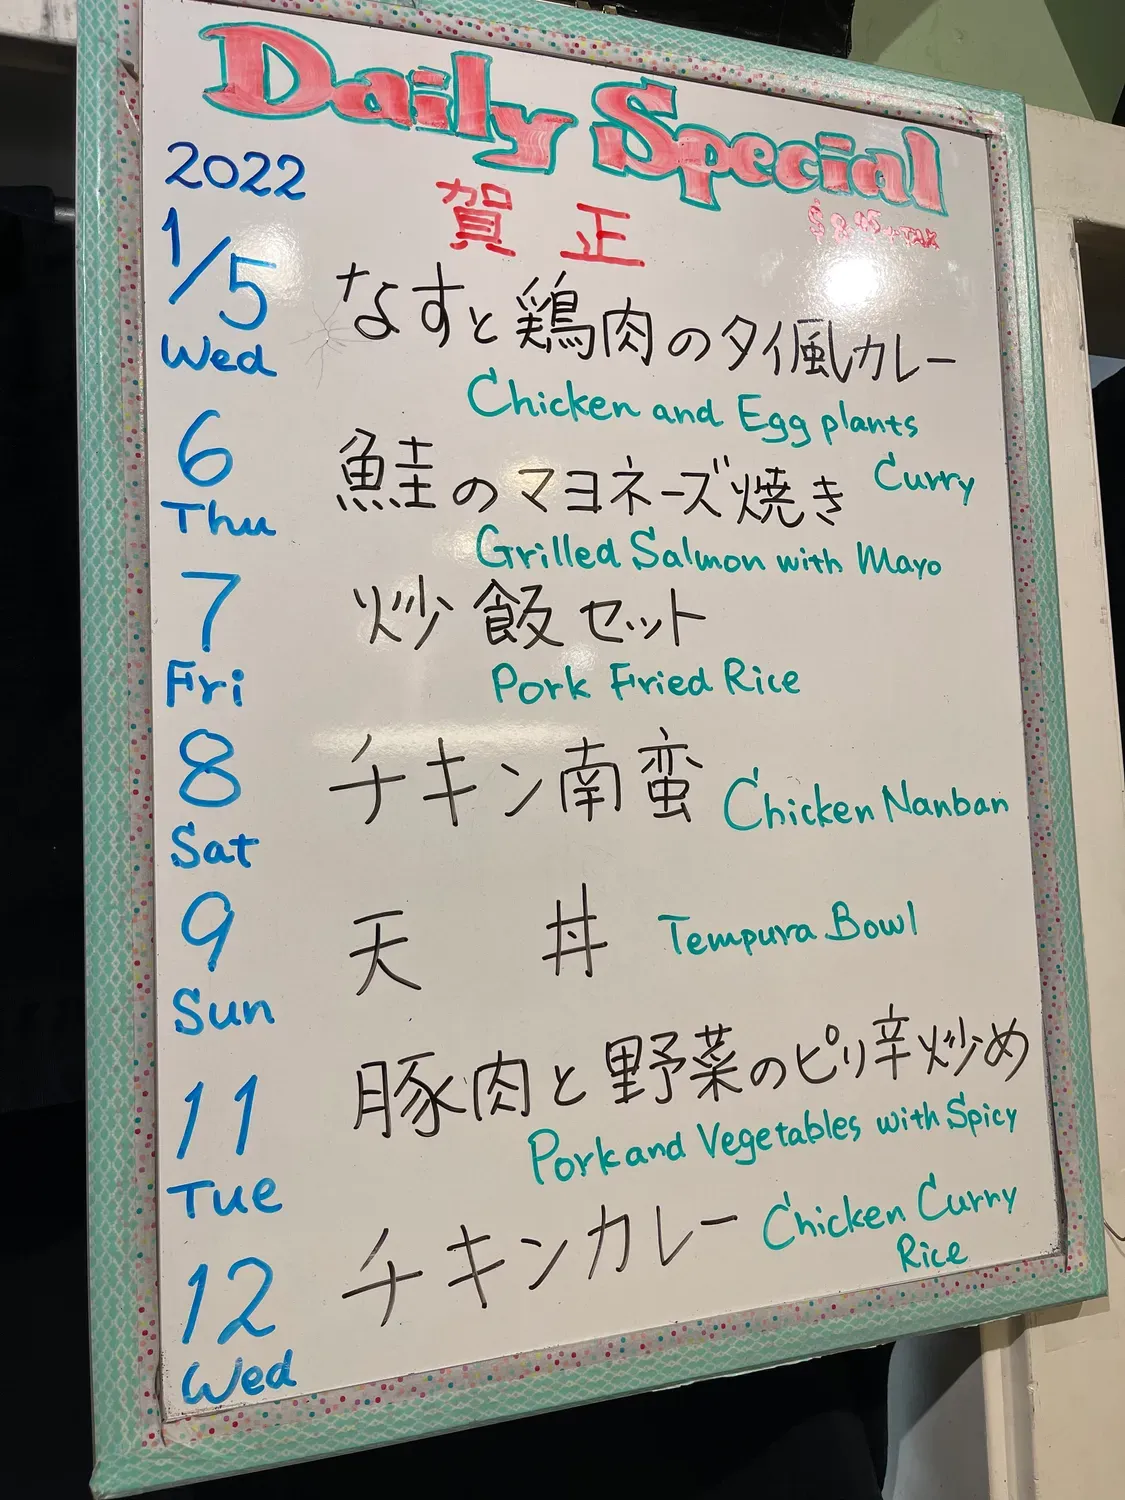 Daily Special
2022
賀正
$8.95+TAX
1/5
Wed
なすと鶏肉のタイ風カレー
Chicken and Egg plants
Curry
6
Thu
鮭のマヨネーズ焼き
Grilled Salmon with Mayo
7
Fri
炒飯セット
Pork Fried Rice
8
Sat
チキン南蛮
Chicken Nanban
9
Sun
天丼
Tempura Bowl
11
Tue
豚肉と野菜のピリ辛炒め
Pork and Vegetables with Spicy
12
Wed
チキンカレー
Chicken Curry
Rice